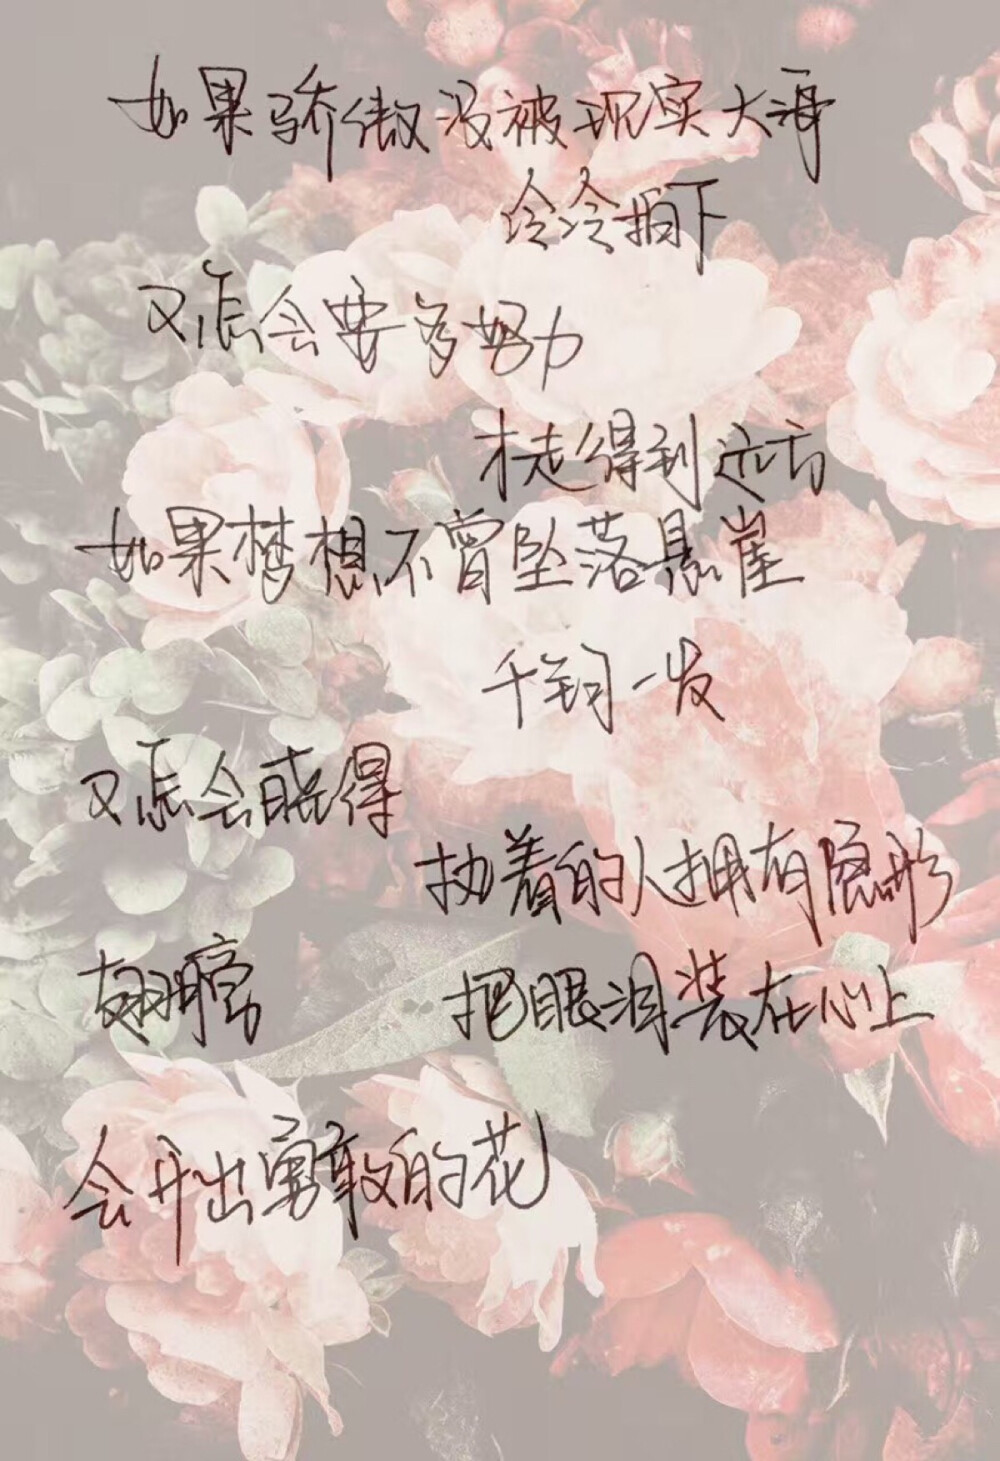 如果骄傲没被现实大海
冷冷拍下
又怎会要多努力
才走得到远方
如果梦想不曾坠落悬崖
千钧一发
又怎会晓得
执着的人拥有隐形
翅膀 把眼泪装在心上
会开出勇敢的花